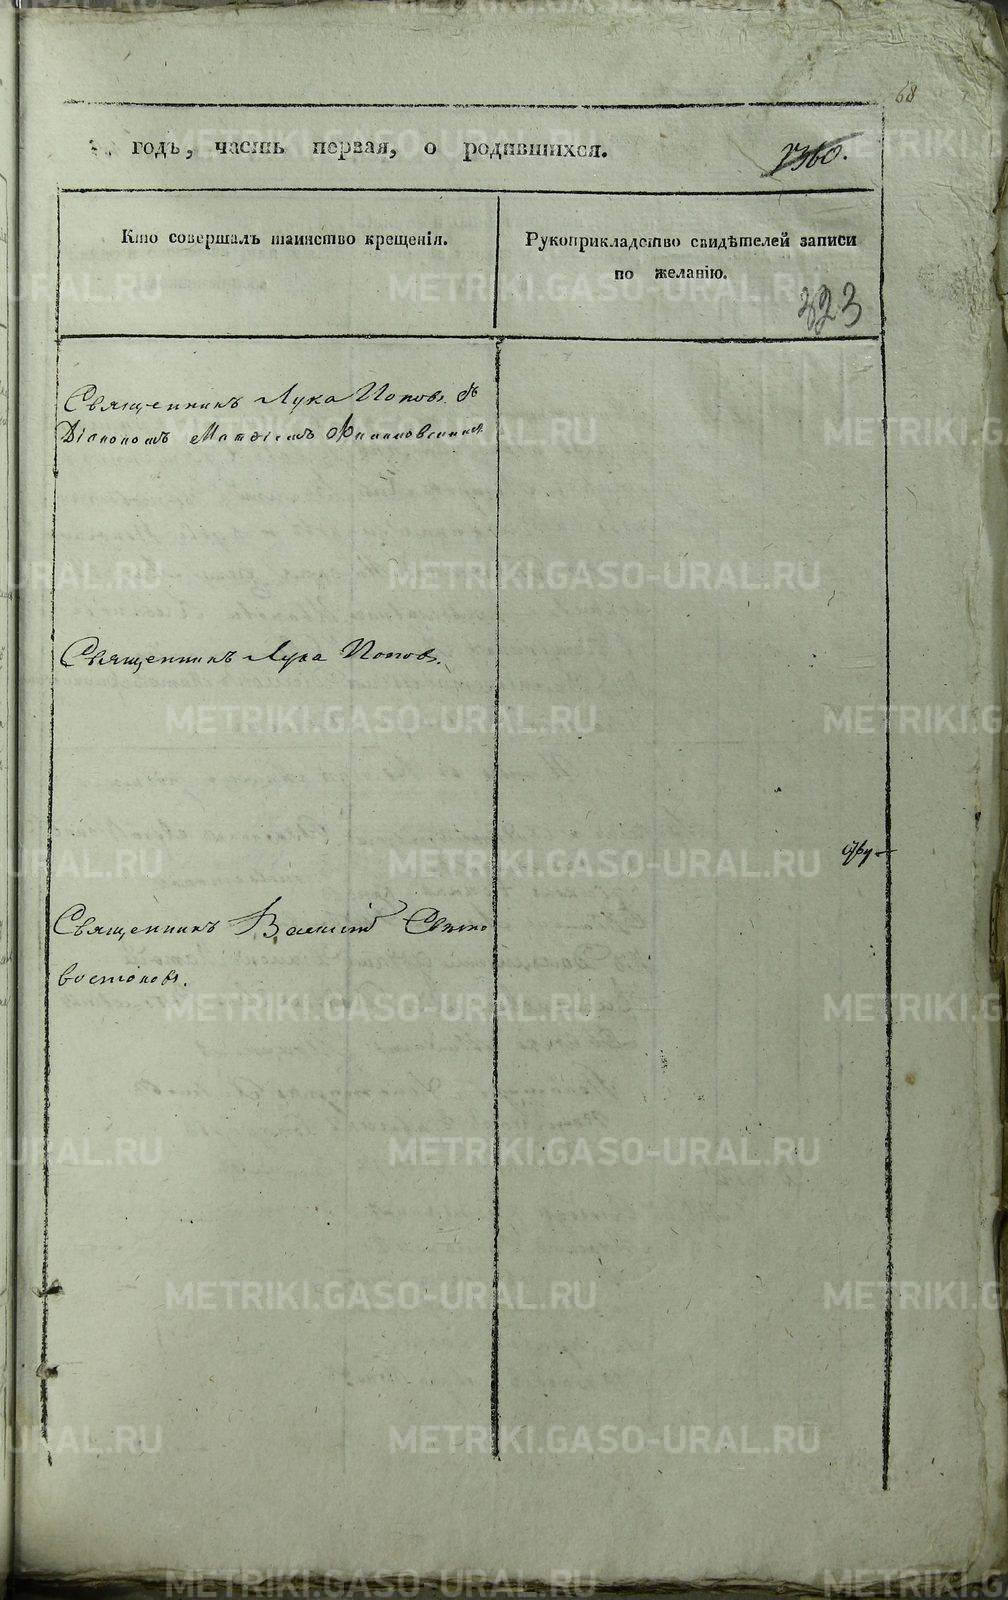 68
годъ, часть первая, о родившихся.
1360.
Кто совершалъ таинство крещенія.
Рукоприкладство свидѣтелей записи
по желанію.
323
Священникъ Лука Поповъ съ
Діакономъ Матѳіемъ
Священникъ Лука Поповъ.
Священникъ Василій Свѣто
востоковъ.
METRIKI.GASO-URAL.RU